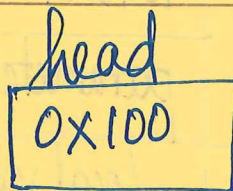 head
0x100